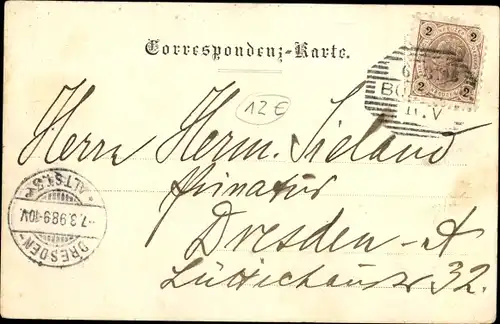 Correspondenz-Karte.
2 2
2 2
6
BO
11.V
12€
Herrn Herm. Sieland
Privatier
Dresden-A
Lüttichaustr 32.
DRESDEN-
* ALTST.S *
-7.3.98 9-10V.